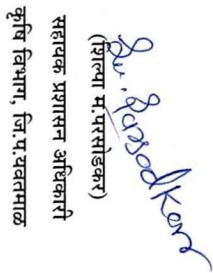 Su. Parsodkar
(शिल्पा म.परसोडकर)
सहायक प्रशासन अधिकारी
कृषि विभाग, जि.प.यवतमाळ